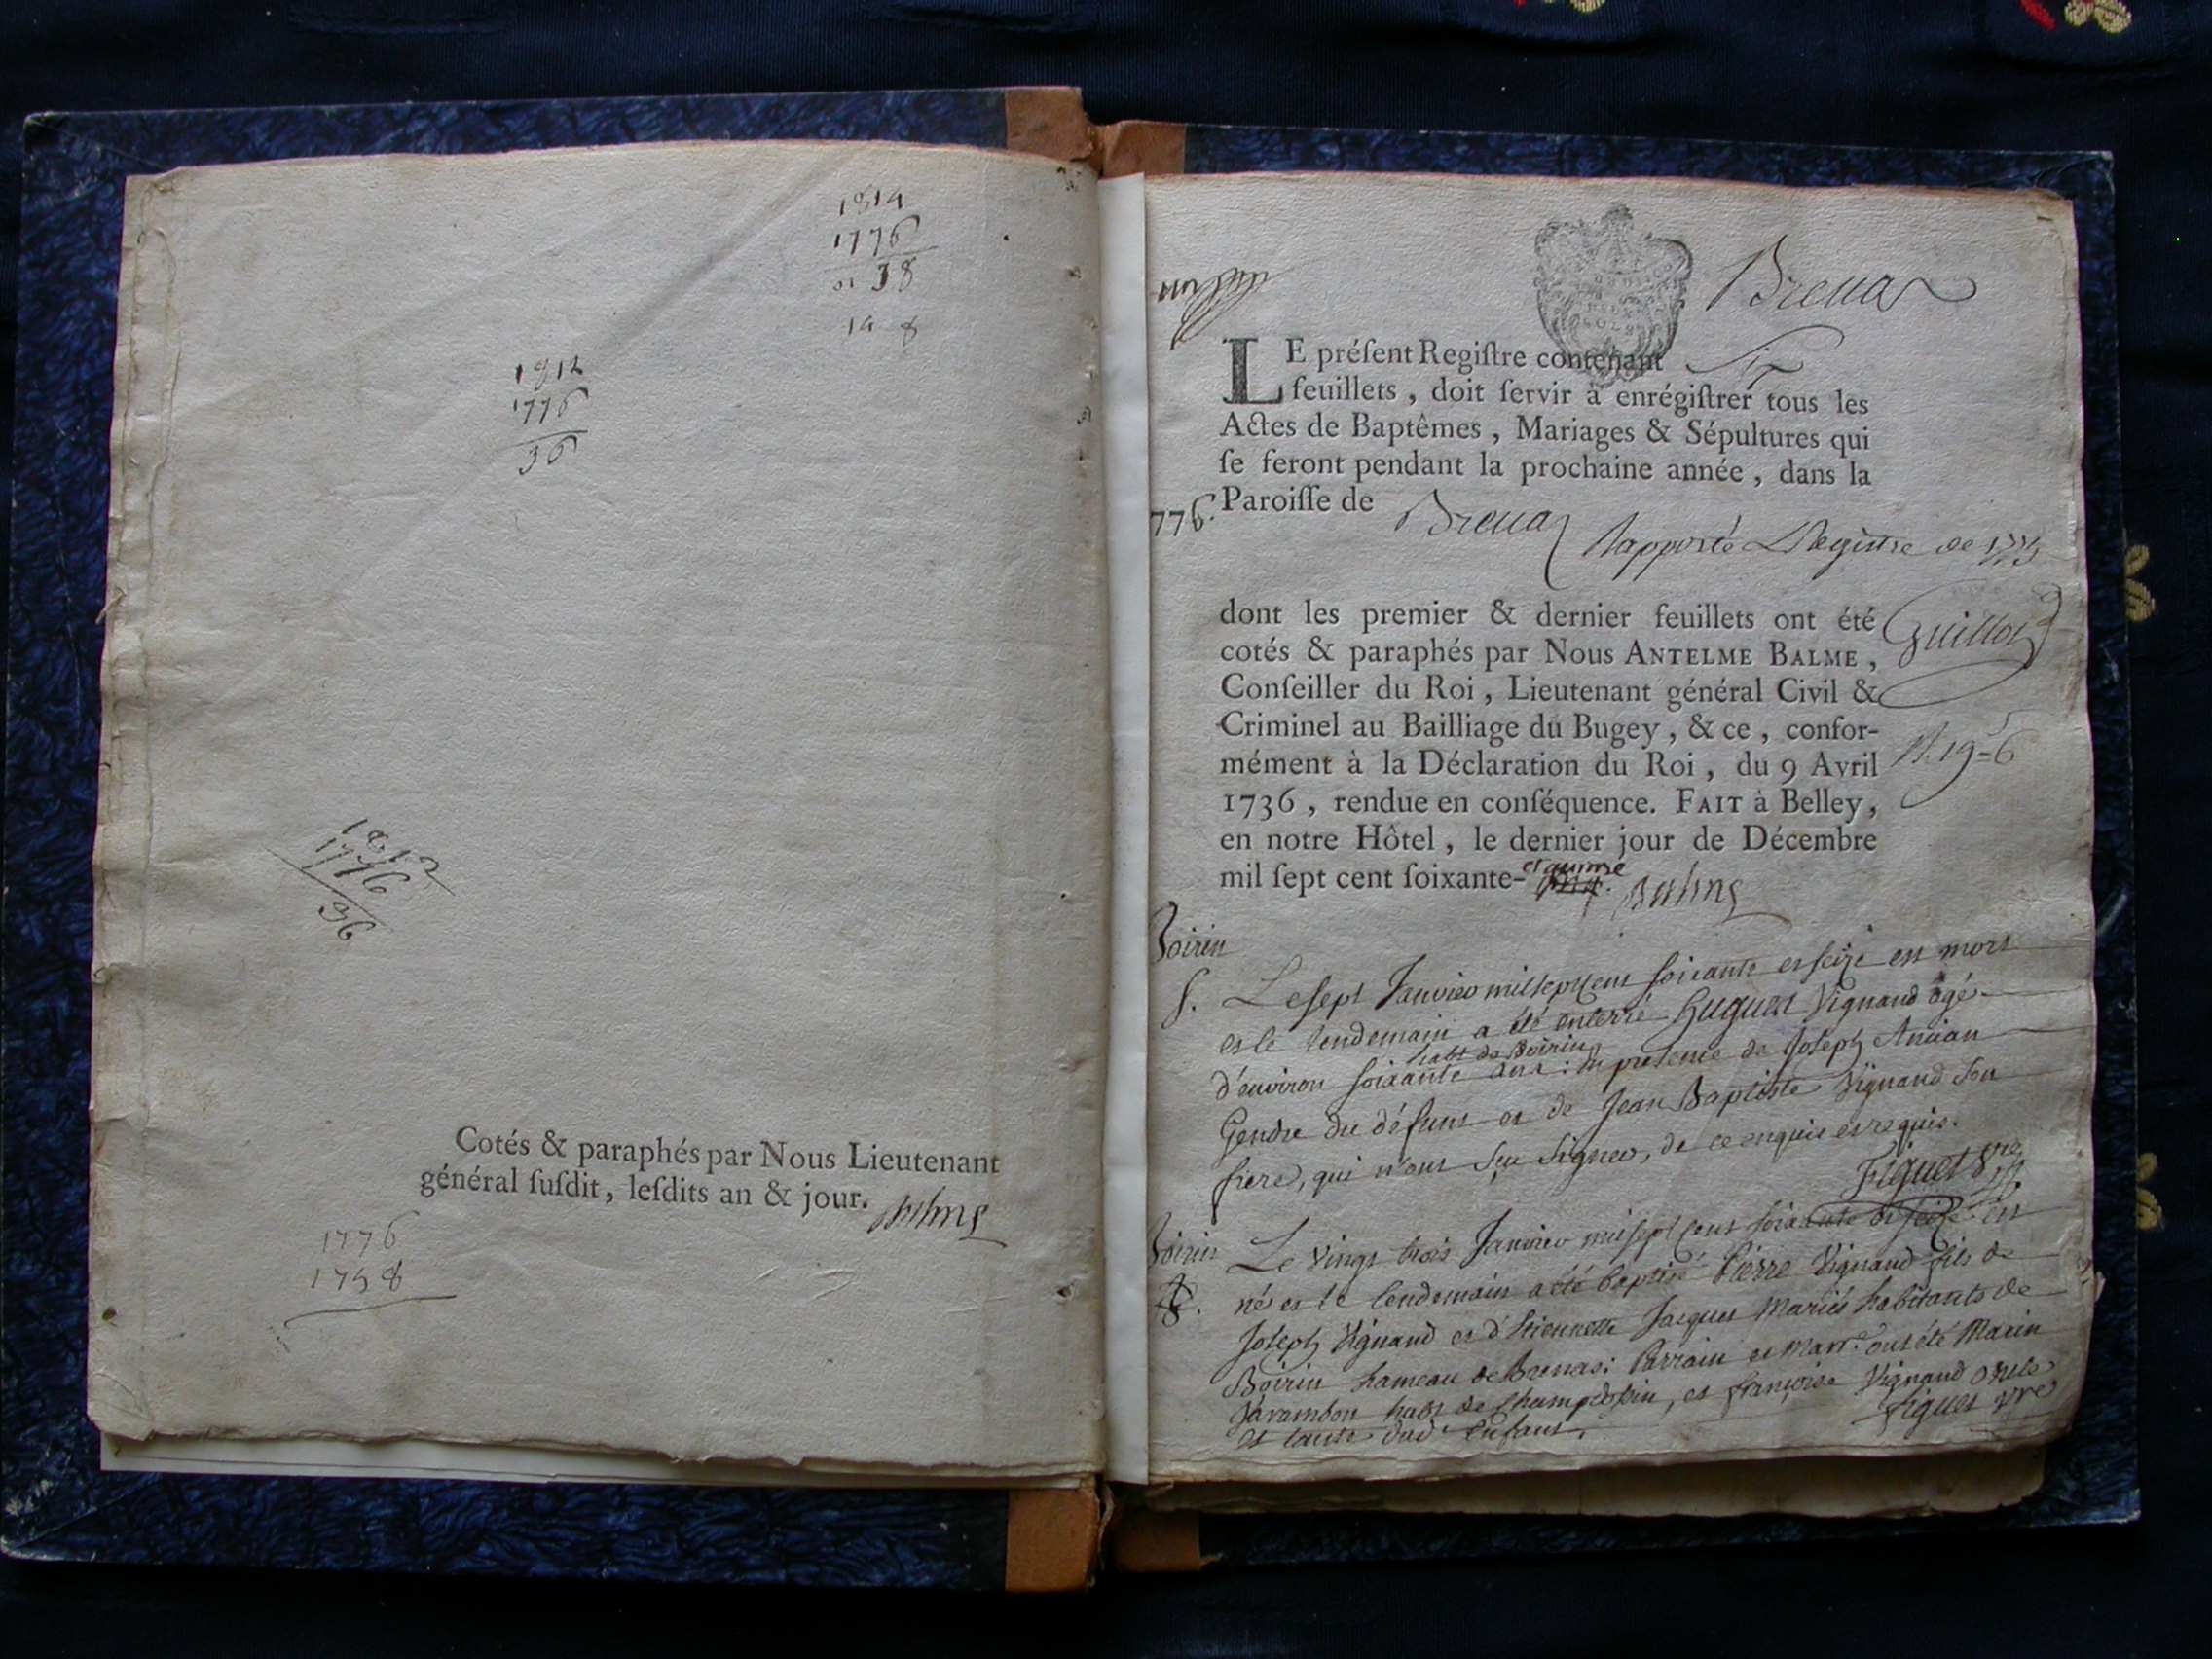 1814
1776
38
1812
1776
36
1812
1776
36
Cotés & paraphés par Nous Lieutenant
général ſuſdit, leſdits an & jour. Balme
1776
1758
Brenas
LE préſent Regiſtre contenant Six
feuillets, doit ſervir à enrégiſtrer tous les
Actes de Baptêmes, Mariages & Sépultures qui
ſe feront pendant la prochaine année, dans la
Paroiſſe de Brenaz
776.
Rapporté Le Registre de 1775
dont les premier & dernier feuillets ont été
cotés & paraphés par Nous ANTELME BALME,
Conſeiller du Roi, Lieutenant général Civil &
Criminel au Bailliage du Bugey, & ce, confor-
mément à la Déclaration du Roi, du 9 Avril
1736, rendue en conſéquence. FAIT à Belley,
en notre Hôtel, le dernier jour de Décembre
mil ſept cent ſoixante- et quinze Balme
Guillot
Boirin
S. Le sept Janvier mil sept cent soixante et seize est mort
et le lendemain a été enterré Hugues Vignand agé
d'environ soixante ans habt de Boirin: en presence de Joseph Ancian
Gendre du défunt et de Jean Baptiste Vignand son
frere, qui n'ont sçu signer, de ce enquis et requis.
Figuet
Boirin
B. Le vingt trois Janvier mil sept cent soixante et seize est
né et le lendemain a été baptisé Pierre Vignand fils de
Joseph Vignand et d'Etiennette Jacquet mariés habitants de
Boirin hameau de Brenas: Parrain et Marr.e ont été Marin
Javambon habt de et françoise Vignand oncle
et tante dud. enfant. figuet